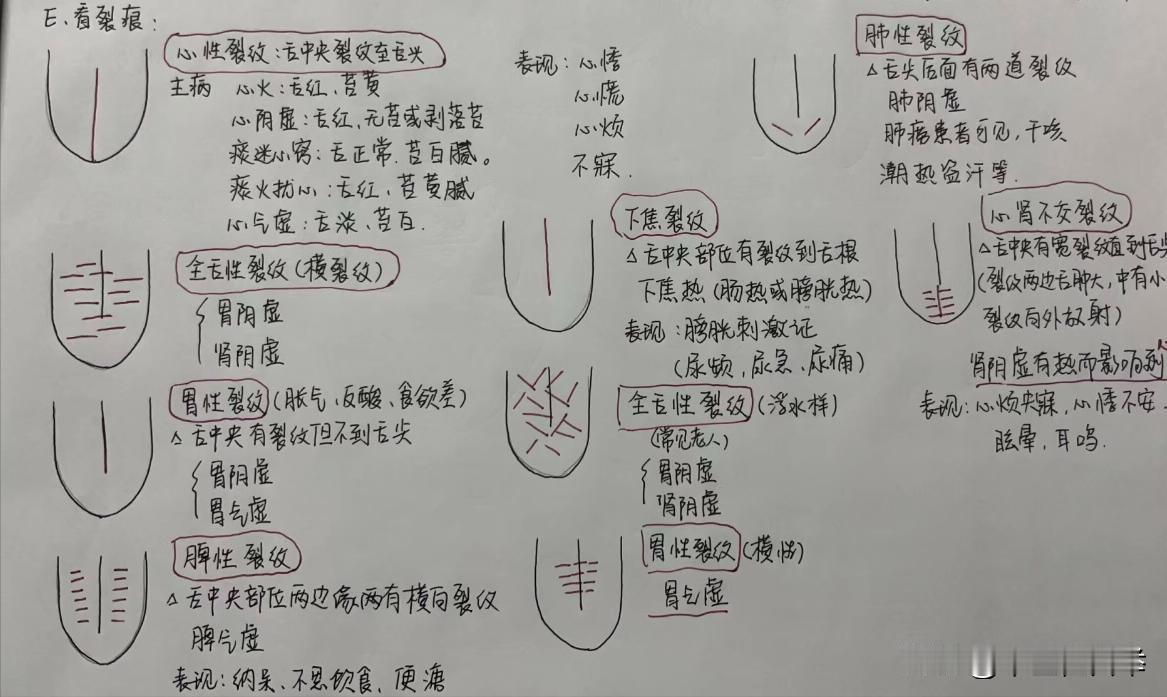 E、看裂痕：
心性裂纹：舌中央裂纹至舌头
主病 心火：舌红、苔黄
心阴虚：舌红、无苔或剥落苔
痰迷心窍：舌正常．苔白腻。
痰火扰心：舌红、苔黄腻
心气虚：舌淡、苔白．
表现：心悸
心慌
心烦
不寐．
肺性裂纹
△舌尖后面有两道裂纹
肺阴虚
肺痨患者可见，干咳
潮热盗汗等．
全舌性裂纹（横裂纹）
胃阴虚
肾阴虚
下焦裂纹
△舌中央部位有裂纹到舌根
下焦热（肠热或膀胱热）
表现：膀胱刺激证
（尿频，尿急、尿痛）
心肾不交裂纹
△舌中央有宽裂纹直到舌尖
（裂纹两边舌肿大，中有小
裂纹向外放射）
肾阴虚有热而影响到
表现：心烦失寐，心悸不安．
眩晕，耳鸣．
胃性裂纹（胀气、反酸、食欲差）
△舌中央有裂纹但不到舌尖
胃阴虚
胃气虚
全舌性裂纹（浮水样）
（常见老人）
胃阴虚
肾阴虚
脾性裂纹
△舌中央部位两边缘两有横向裂纹
脾气虚
表现：纳呆、不思饮食、便溏
胃性裂纹（横性）
胃气虚